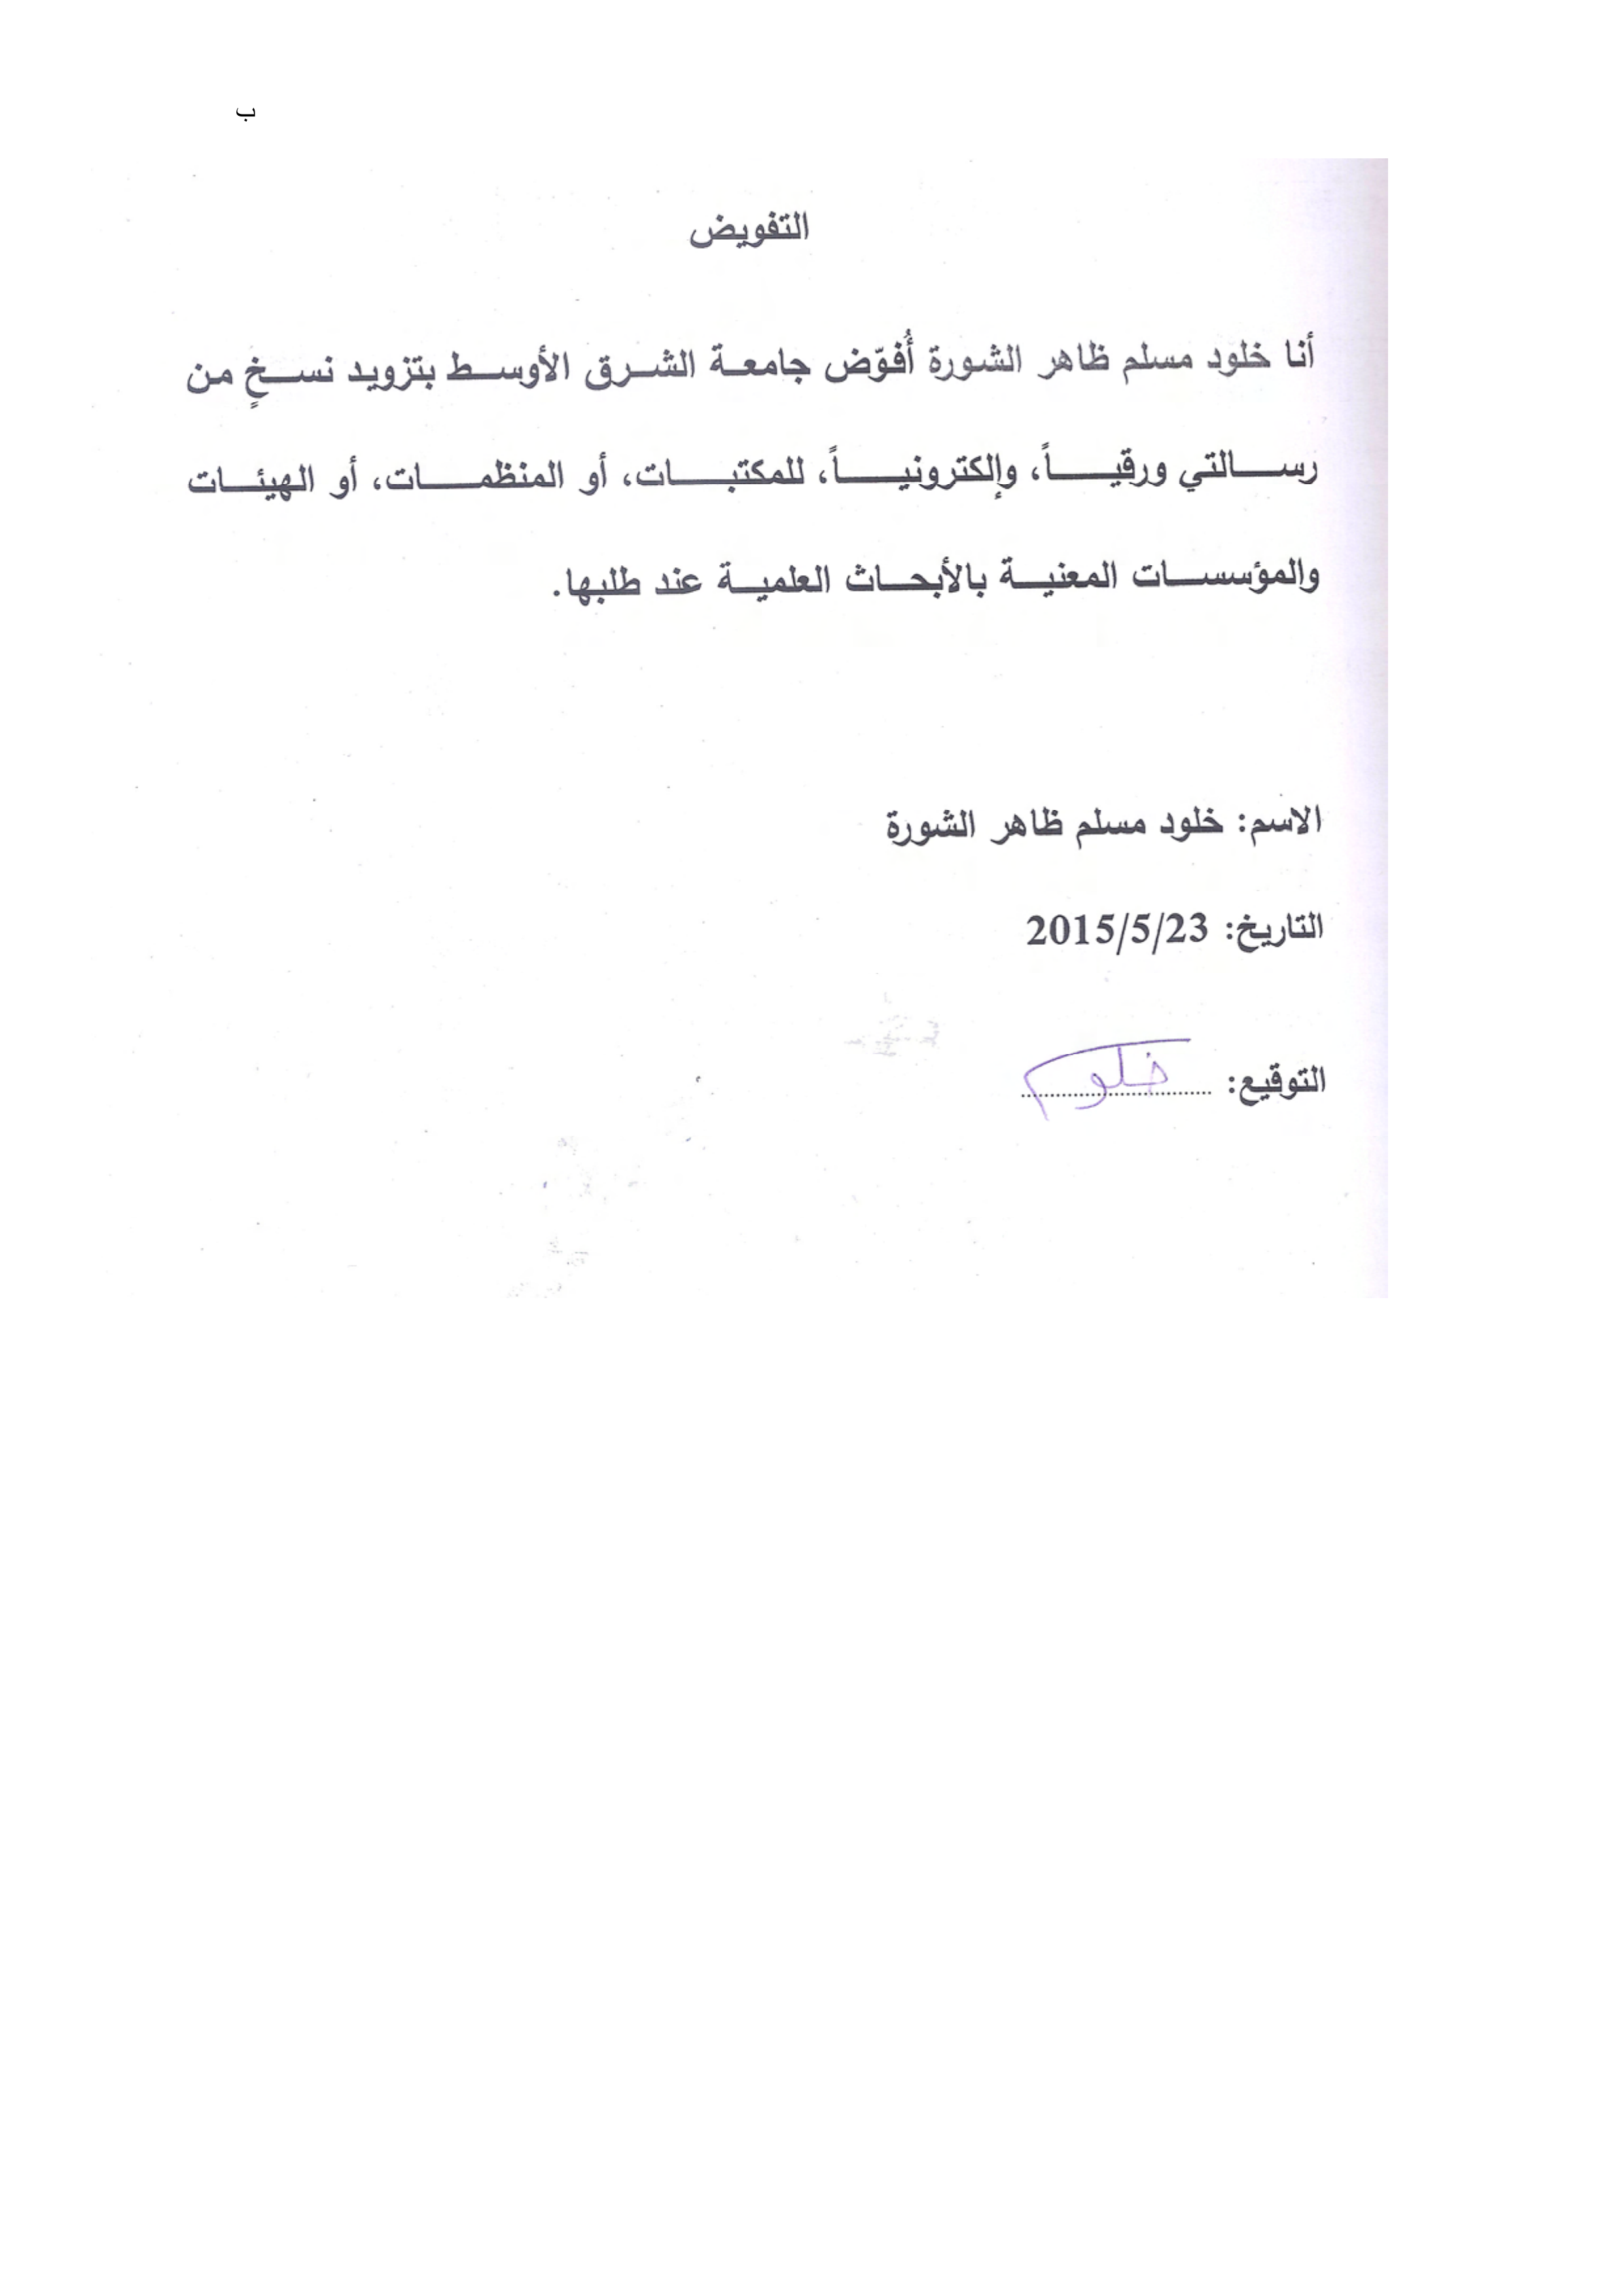 ب
التفويض
أنا خلود مسلم ظاهر الشورة أُفوّض جامعة الشرق الأوسط بتزويد نسخٍ من
رسالتي ورقياً، وإلكترونياً، للمكتبات، أو المنظمات، أو الهيئات
والمؤسسات المعنية بالأبحاث العلمية عند طلبها.
الاسم: خلود مسلم ظاهر الشورة
التاريخ: 2015/5/23
التوقيع: خلود